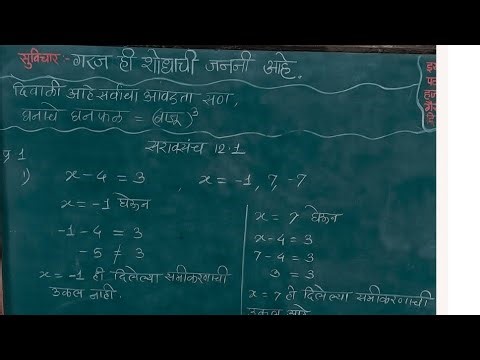 सुविचार :- गरज ही शोधाची जननी आहे.
दिवाळी आहे सर्वांचा आवडता सण,
घनाचे घनफळ = (बाजू)³
सरावसंच 12.1
प्र 1
1) x - 4 = 3 , x = -1, 7, -7
x = -1 घेऊन
-1 - 4 = 3
-5 ≠ 3
x = -1 ही दिलेल्या समीकरणाची
उकल नाही.
x = 7 घेऊन
x - 4 = 3
7 - 4 = 3
3 = 3
x = 7 ही दिलेल्या समीकरणाची
उकल आहे